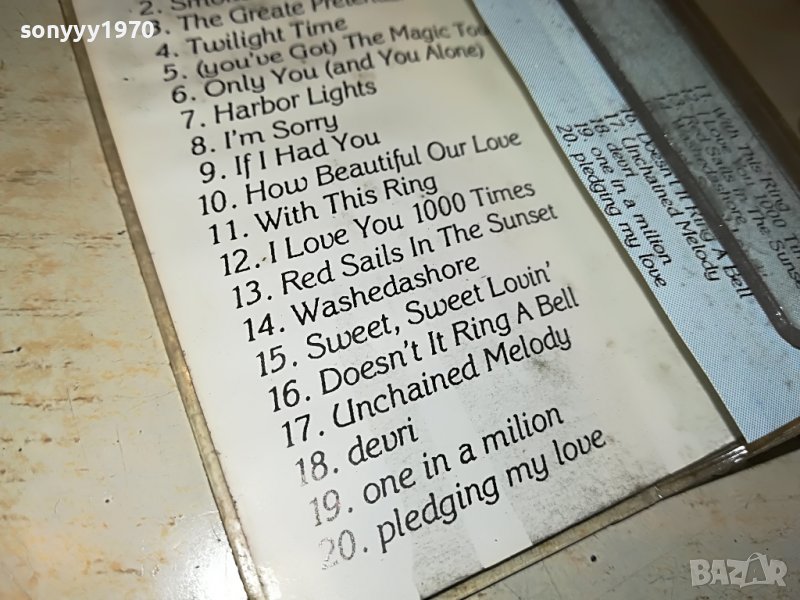 sonyyy1970
2.
3. The Greate
4. Twilight Time
5. (you've Got) The Magic
6. Only You (and You Alone)
7. Harbor Lights
8. I'm Sorry
9. If I Had You
10. How Beautiful Our Love
11. With This Ring
12. I Love You 1000 Times
13. Red Sails In The Sunset
14. Washedashore
15. Sweet, Sweet Lovin'
16. Doesn't It Ring A Bell
17. Unchained Melody
18. devri
19. one in a milion
20. pledging my love
With This Ring
I Love You 1000
Red Sails In The
Doesn't It Ring A Bell
17. Unchained Melody
18. devri
19. one in a milion
20. pledging my love
BAZAR